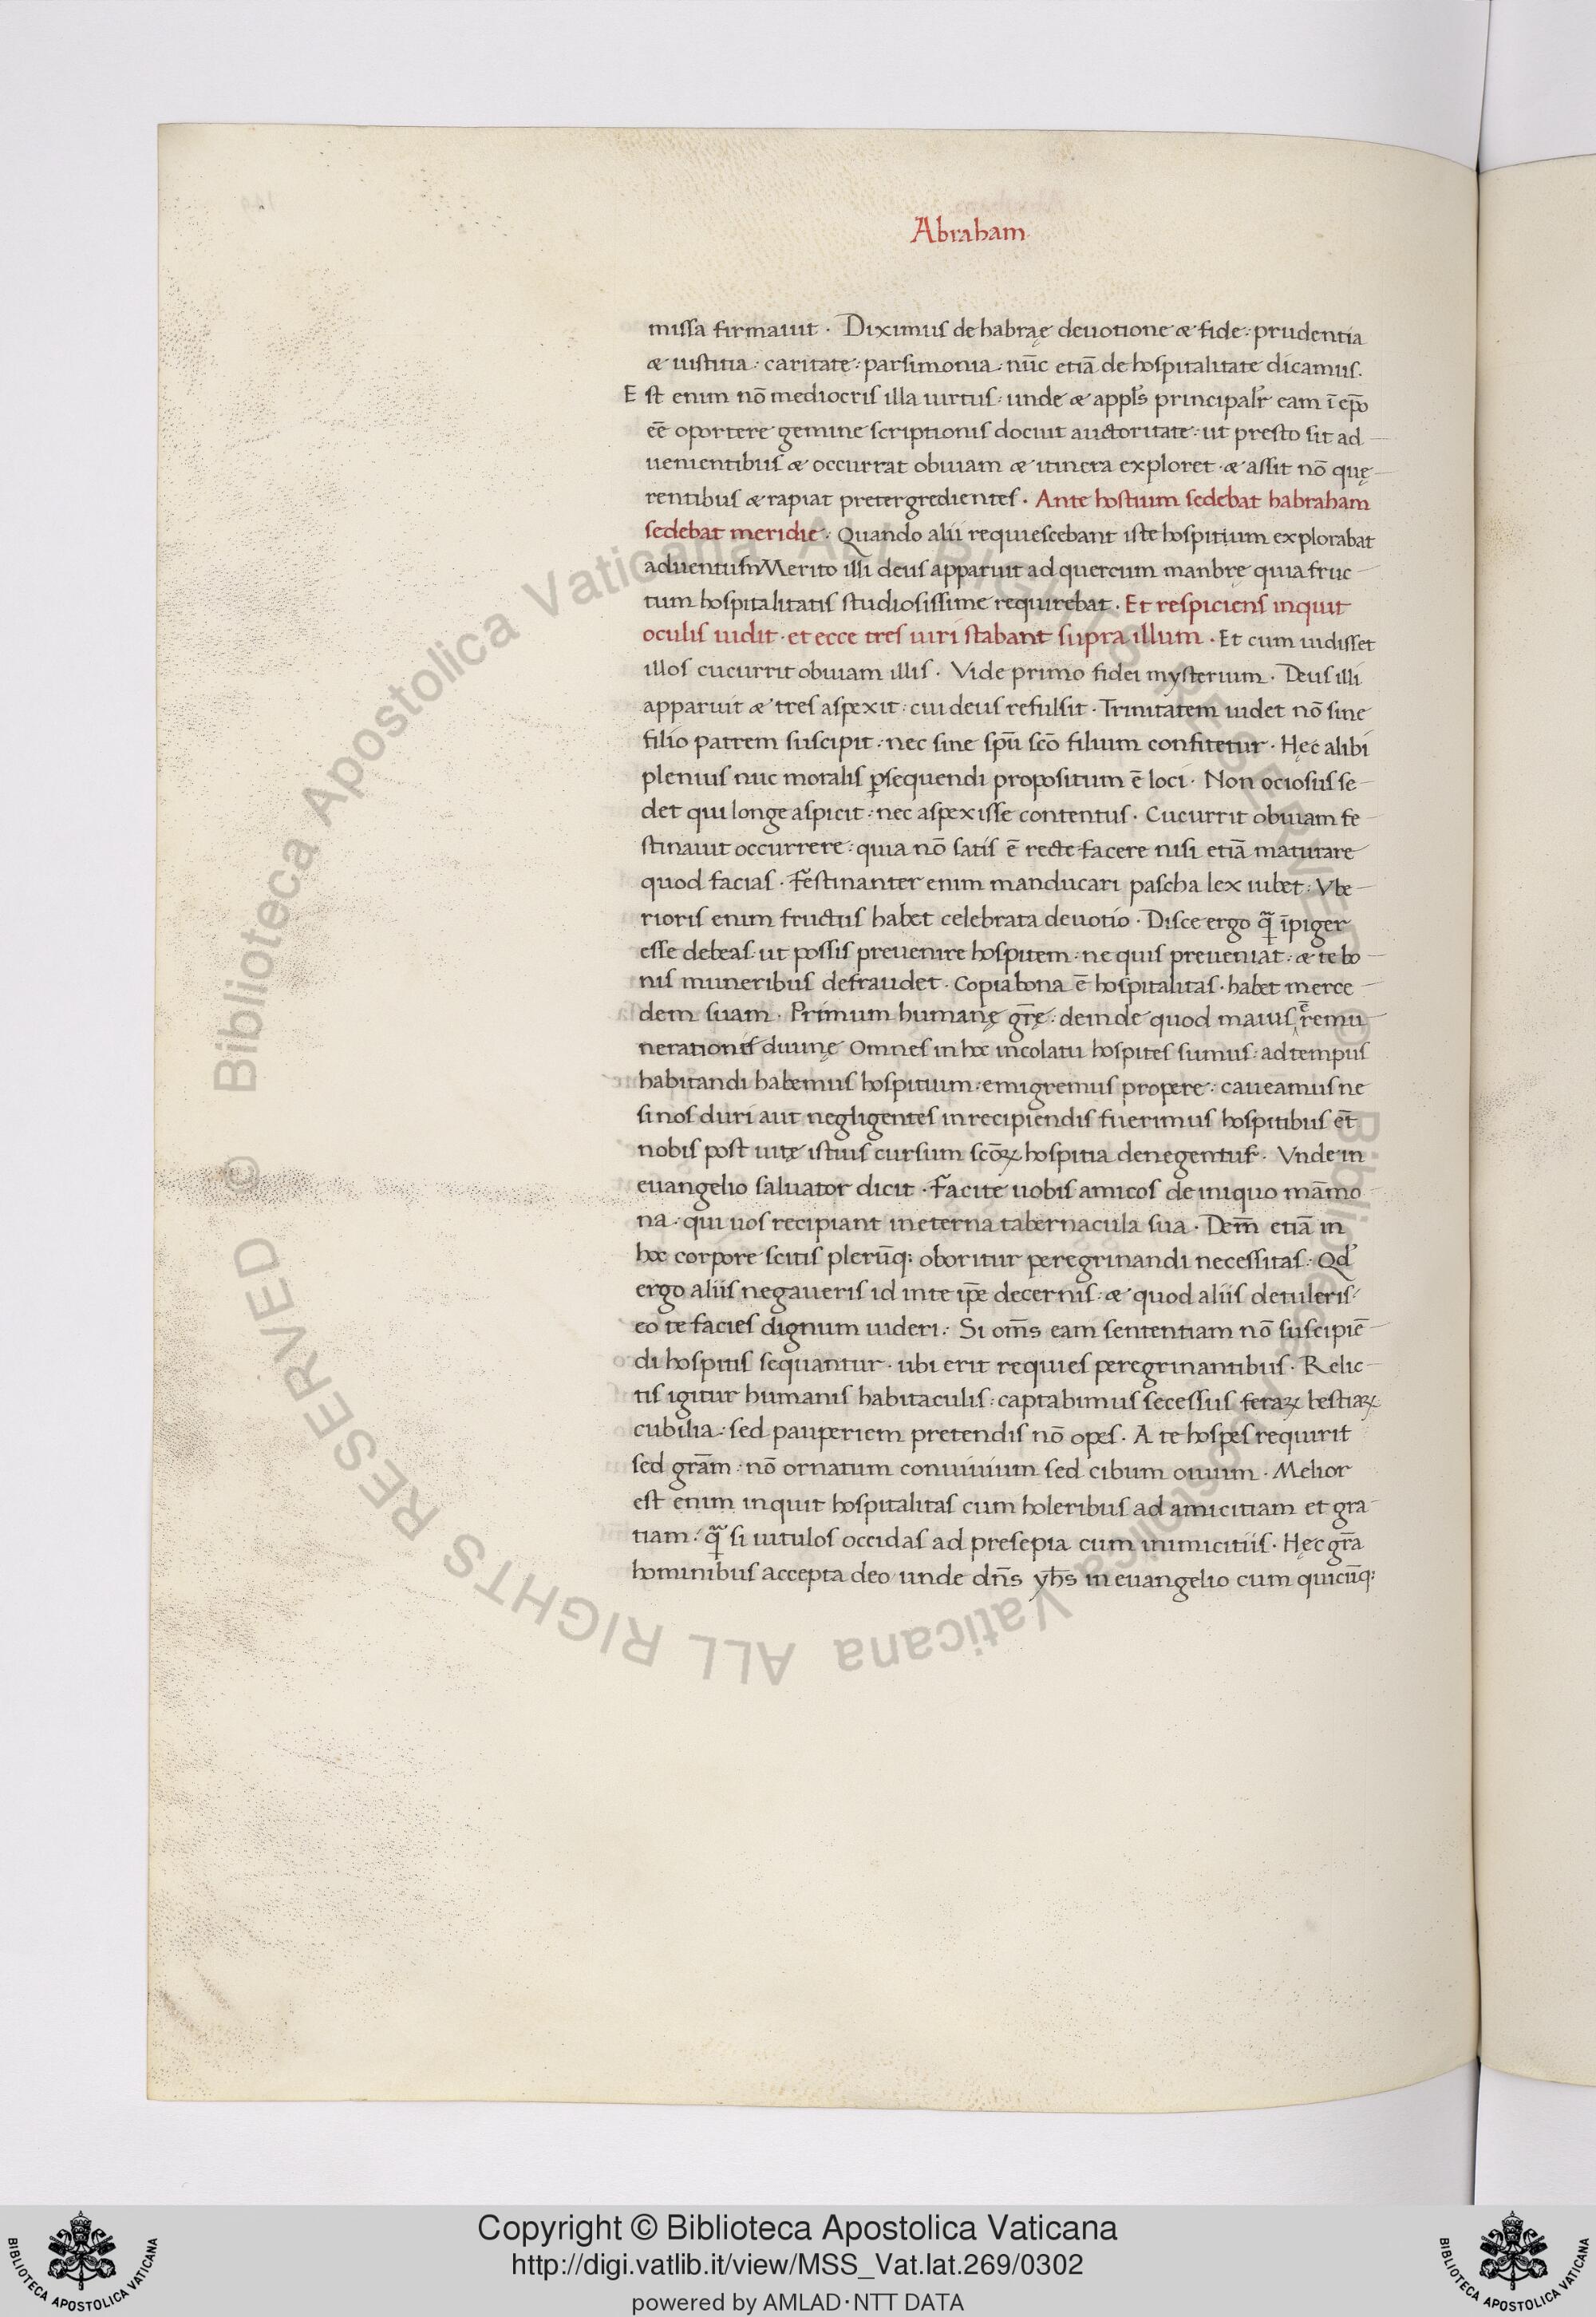 Abraham
missa firmauit · Diximus de habraę deuotione & fide : prudentia
& iustitia : caritate : parsimonia : nūc etiā de hospitalitate dicamus.
Est enim nō mediocris illa uirtus : unde & appl̄s principalr̄ eam ī ep̄o
eē oportere gemine scriptionis docuit auctoritate : ut presto sit ad
uenientibus & occurrat obuiam & itinera exploret · & assit nō quę
rentibus & rapiat pretergredientes · Ante hostium sedebat habraham
sedebat meridie · Quando alii requiescebant iste hospitium explorabat
aduentus Merito illi deus apparuit ad quercum manbrę quia fruc
tum hospitalitatis studiosissime requirebat · Et respiciens inquit
oculis uidit · et ecce tres uiri stabant supra illum · Et cum uidisset
illos cucurrit obuiam illis · Vide primo fidei mysterium · Deus illi
apparuit & tres aspexit : cui deus refulsit · Trinitatem uidet nō sine
filio patrem suscipit : nec sine spū scō filium confitetur · Hęc alibi
plenius nuc moralis ꝑsequendi propositum ē loci · Non ociosus se
det qui longe aspicit : nec aspexisse contentus · Cucurrit obuiam fe
stinauit occurrere : quia nō satis ē recte facere nisi etiā maturare
quod facias · Festinanter enim manducari pascha lex iubet : Vbe
rioris enim fructus habet celebrata deuotio · Disce ergo ꝗ̄ īpiger
esse debeas : ut possis preuenire hospitem : ne quis preueniat : & te bo
nis muneribus defraudet · Copia bona ē hospitalitas · habet merce
dem suam · Primum humanę gr̄ę : deinde quod maius ē remu
nerationis diuinę Omnes in hoc incolatu hospites sumus : ad tempus
habitandi habemus hospitium : emigremus propere : caueamus ne
si nos duri aut negligentes in recipiendis fuerimus hospitibus et̄
nobis post uitę istius cursum scōꝝ hospitia denegentur · Vnde in
euangelio saluator dicit · Facite uobis amicos de iniquo māmo
na · qui uos recipiant in eterna tabernacula sua · Dem̄ etiā in
hoc corpore scitis plerūq; oboritur peregrinandi necessitas · Qd̓
ergo aliis negaueris id in te ip̄e decernis : & quod aliis detuleris
eo te facies dignum uideri : Si om̄s eam sententiam nō suscipiē
di hospitis sequantur · ubi erit requies peregrinantibus · Relic
tis igitur humanis habitaculis : captabimus secessus feraꝝ bestiaꝝ
cubilia : sed pauperiem pretendis nō opes · A te hospes requirit
sed gram̄ : nō ornatum conuiuium sed cibum ouium · Melior
est enim inquit hospitalitas cum holeribus ad amicitiam et gra
tiam : ꝗ̄ si uitulos occidas ad presepia cum inimicitiis · Hęc gr̄a
hominibus accepta deo unde dn̄s yh̄s in euangelio cum quicūq;
© Biblioteca Apostolica Vaticana ALL RIGHTS RESERVED © Biblioteca Apostolica Vaticana ALL RIGHTS RESERVED
Copyright © Biblioteca Apostolica Vaticana
http://digi.vatlib.it/view/MSS_Vat.lat.269/0302
powered by AMLAD·NTT DATA
BIBLIOTECA APOSTOLICA VATICANA
BIBLIOTECA APOSTOLICA VATICANA